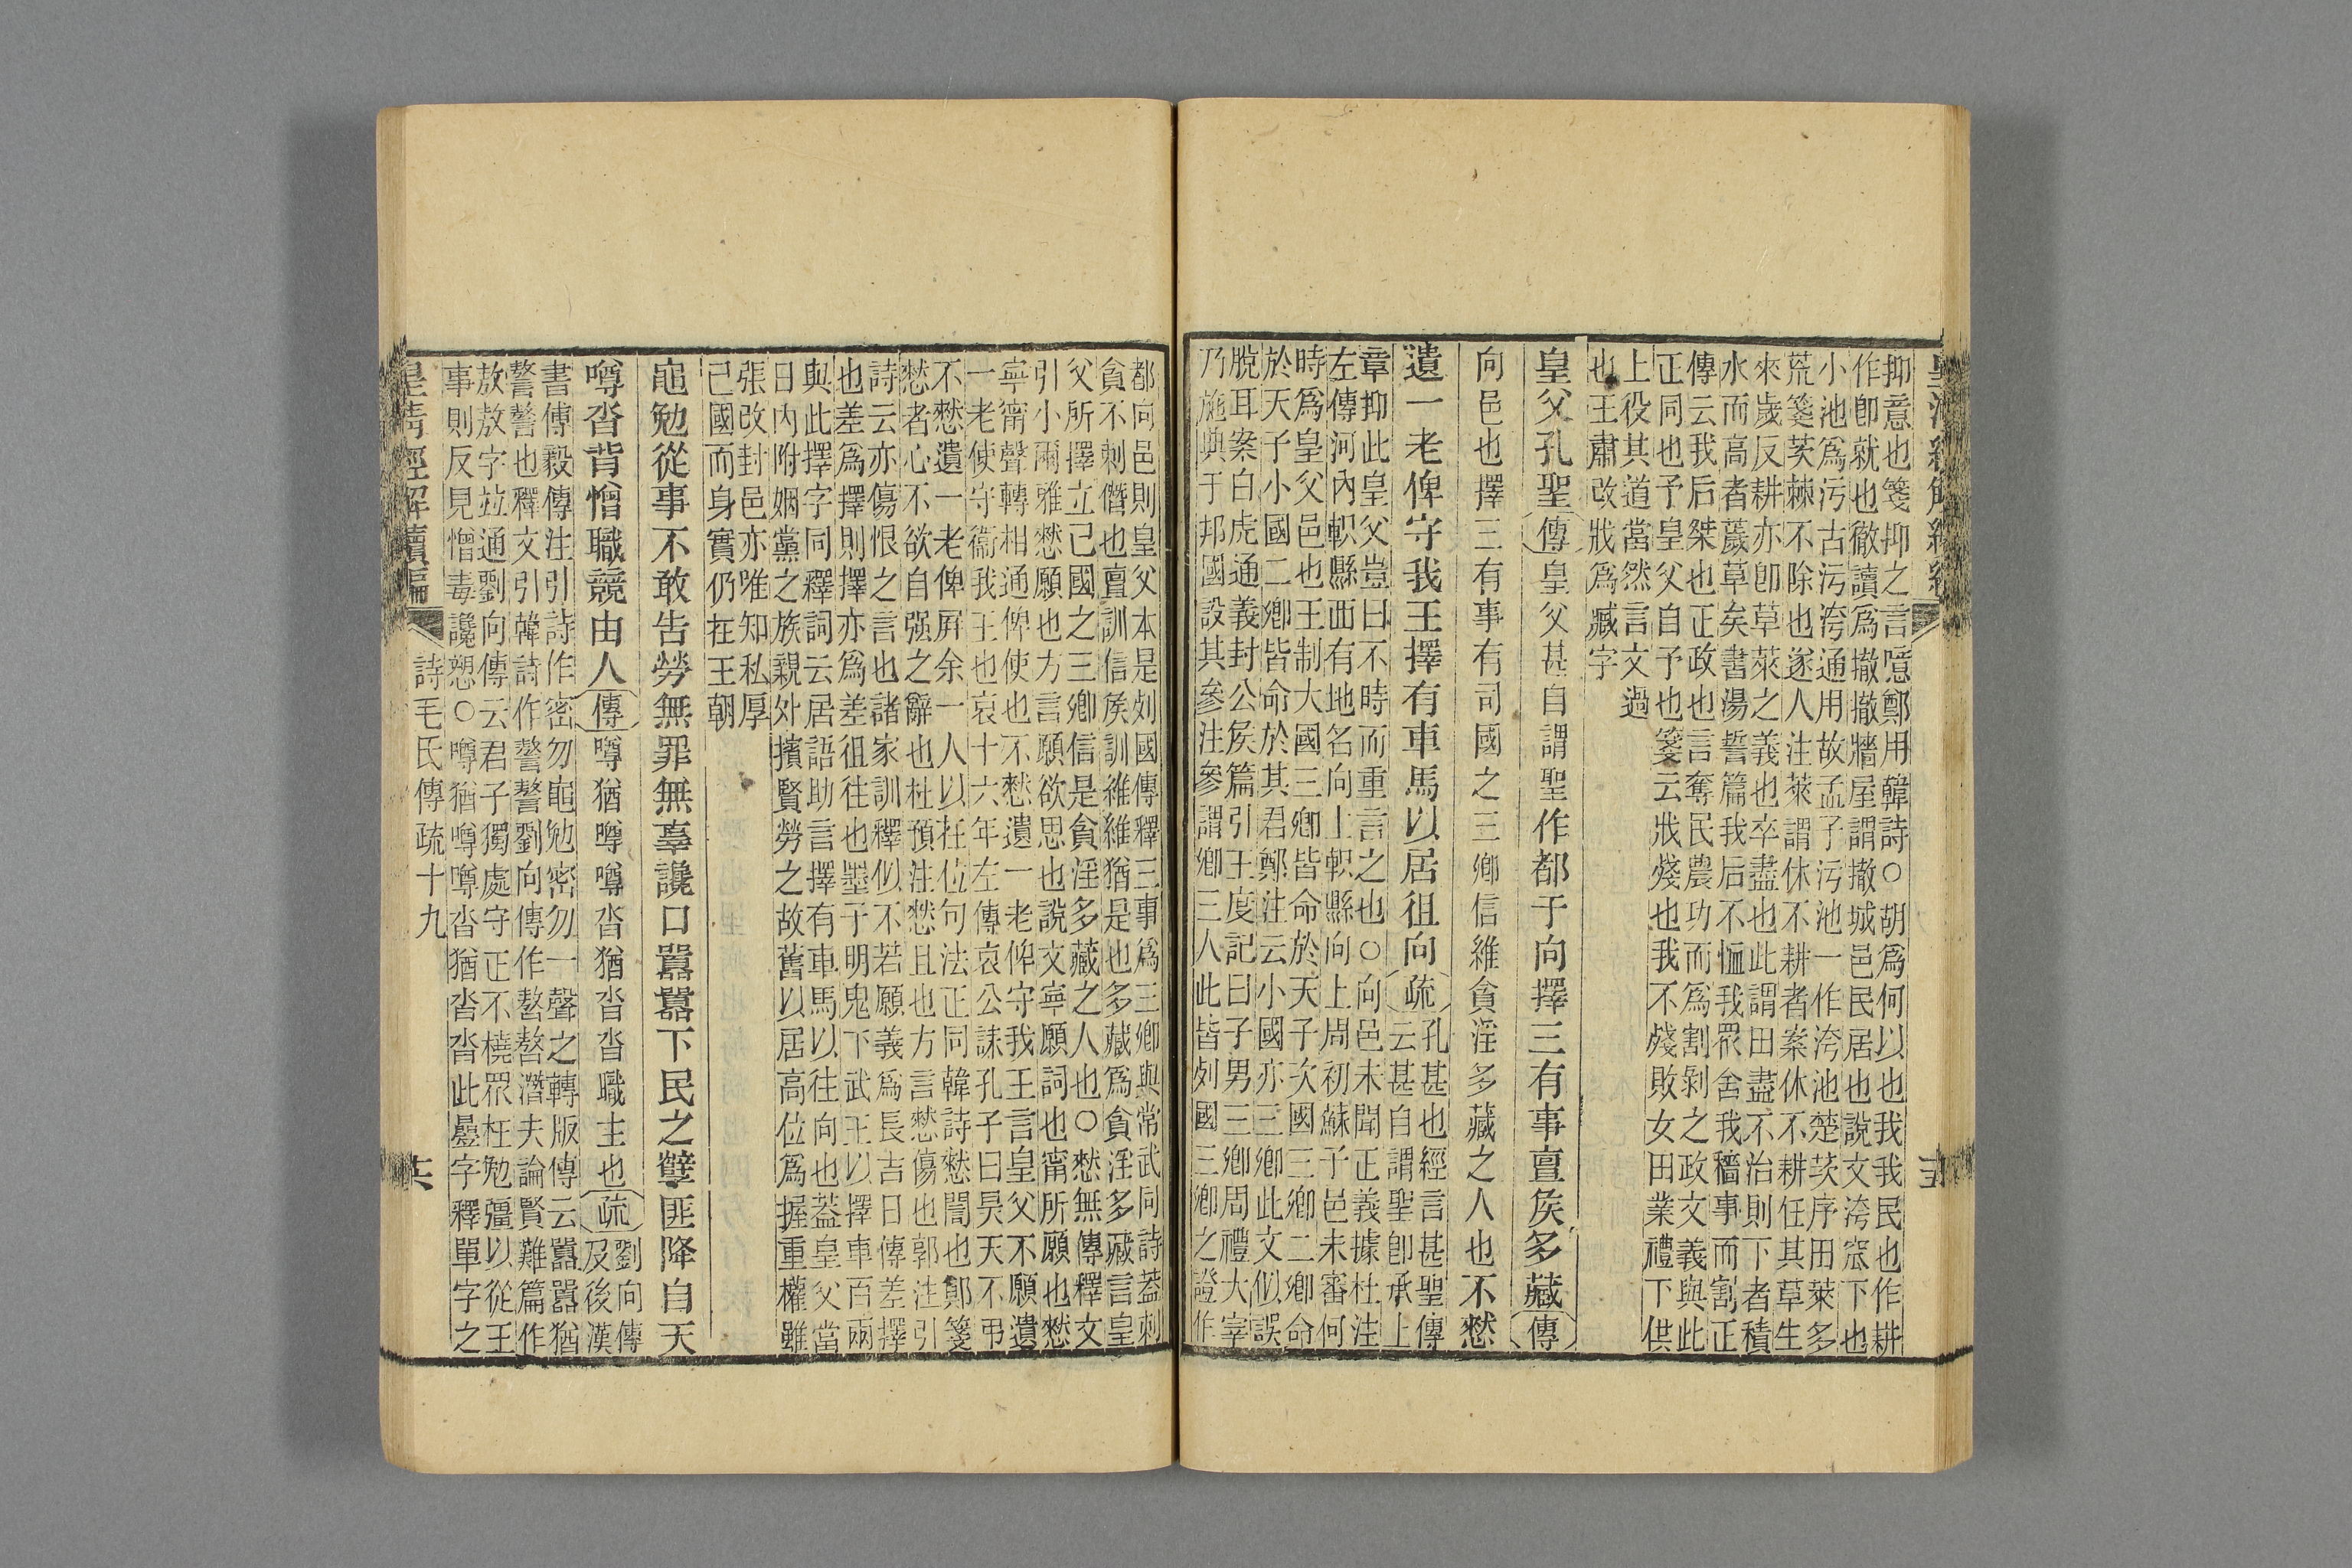 抑意也箋抑之言噫鄭用韓詩○胡爲何以也我我民也作耕
作卽就也徹讀爲撤撤牆屋謂撤城邑民居也說文洿窊下也
小池爲污古污洿通用故孟子污池一作洿池楚茨序田萊多
荒箋茨棘不除也遂人注萊謂休不耕者案休不耕任其草生
來歲反耕亦卽草萊之義也卒盡也此謂田盡不治則下者積
水而高者蕆草矣書湯誓篇我后不恤我眾舍我穡事而割正
傳云我后桀也正政也言奪民農功而爲割剝之政文義與此
正同也予皇父自予也箋云戕殘也我不殘敗女田業禮下供
上役其道當然言文過
也王肅改戕爲臧字
皇父孔聖傳皇父甚自謂聖作都于向擇三有事亶矦多藏傳
向邑也擇三有事有司國之三鄉信維貪淫多藏之人也不憖
遺一老俾守我王擇有車馬以居徂向疏孔甚也經言甚聖傳
云甚自謂聖卽承上
章抑此皇父豈曰不時而重言之也○向邑未聞正義據杜注
左傳河內軹縣西有地名向上軹縣向上周初蘇子邑未審何
時爲皇父邑也王制大國三卿皆命於天子次國三卿二卿命
於天子小國二卿皆命於其君鄭注云小國亦三卿此文似誤
脫耳案白虎通義封公矦篇引王度記曰子男三卿周禮大宰
乃施典于邦國設其參注參謂卿三人此皆列國三卿之證作
都向邑則皇父本是列國傳釋三事爲三卿與常武同詩葢刺
貪不刺僭也亶訓信矦訓維維猶是也多藏爲貪淫多藏言皇
父所擇立已國之三卿信是貪淫多藏之人也○憖無傳釋文
引小爾雅憖願也方言願欲思也說文寧願詞也甯所願也憖
寧甯聲轉相通俾使也不憖遺一老俾守我王言皇父不願遺
一老使守衞我王也哀十六年左傳哀公誄孔子曰昊天不弔
不憖遺一老俾屛余一人以在位句法正同韓詩憖誾也鄭箋
憖者心不欲自强之辭也杜預注憖且也方言憖傷也郭注引
詩云亦傷恨之言也諸家訓釋似不若願義爲長吉日傳差擇
也差爲擇則擇亦爲差徂往也墨子明鬼下武王以擇車百兩
與此擇字同釋詞云居語助言擇有車馬以往向也葢皇父當
日內附姻黨之族親外擯賢勞之故舊以居高位爲握重權雖
張改封邑亦唯知私厚
己國而身實仍在王朝
黽勉從事不敢告勞無罪無辜讒口囂囂下民之孽匪降自天
噂沓背憎職競由人傳噂猶噂噂沓猶沓沓職主也疏劉向傳
及後漢
書傳毅傳注引詩作密勿黽勉密勿一聲之轉版傳云囂囂猶
謷謷也釋文引韓詩作謷謷劉向傳作嗸嗸潛夫論賢難篇作
敖敖字竝通劉向傳云君子獨處守正不橈眾枉勉彊以從王
事則反見憎毒讒愬○噂猶噂噂沓猶沓沓此曡字釋單字之
皇淸經解續編
詩毛氏傳疏十九